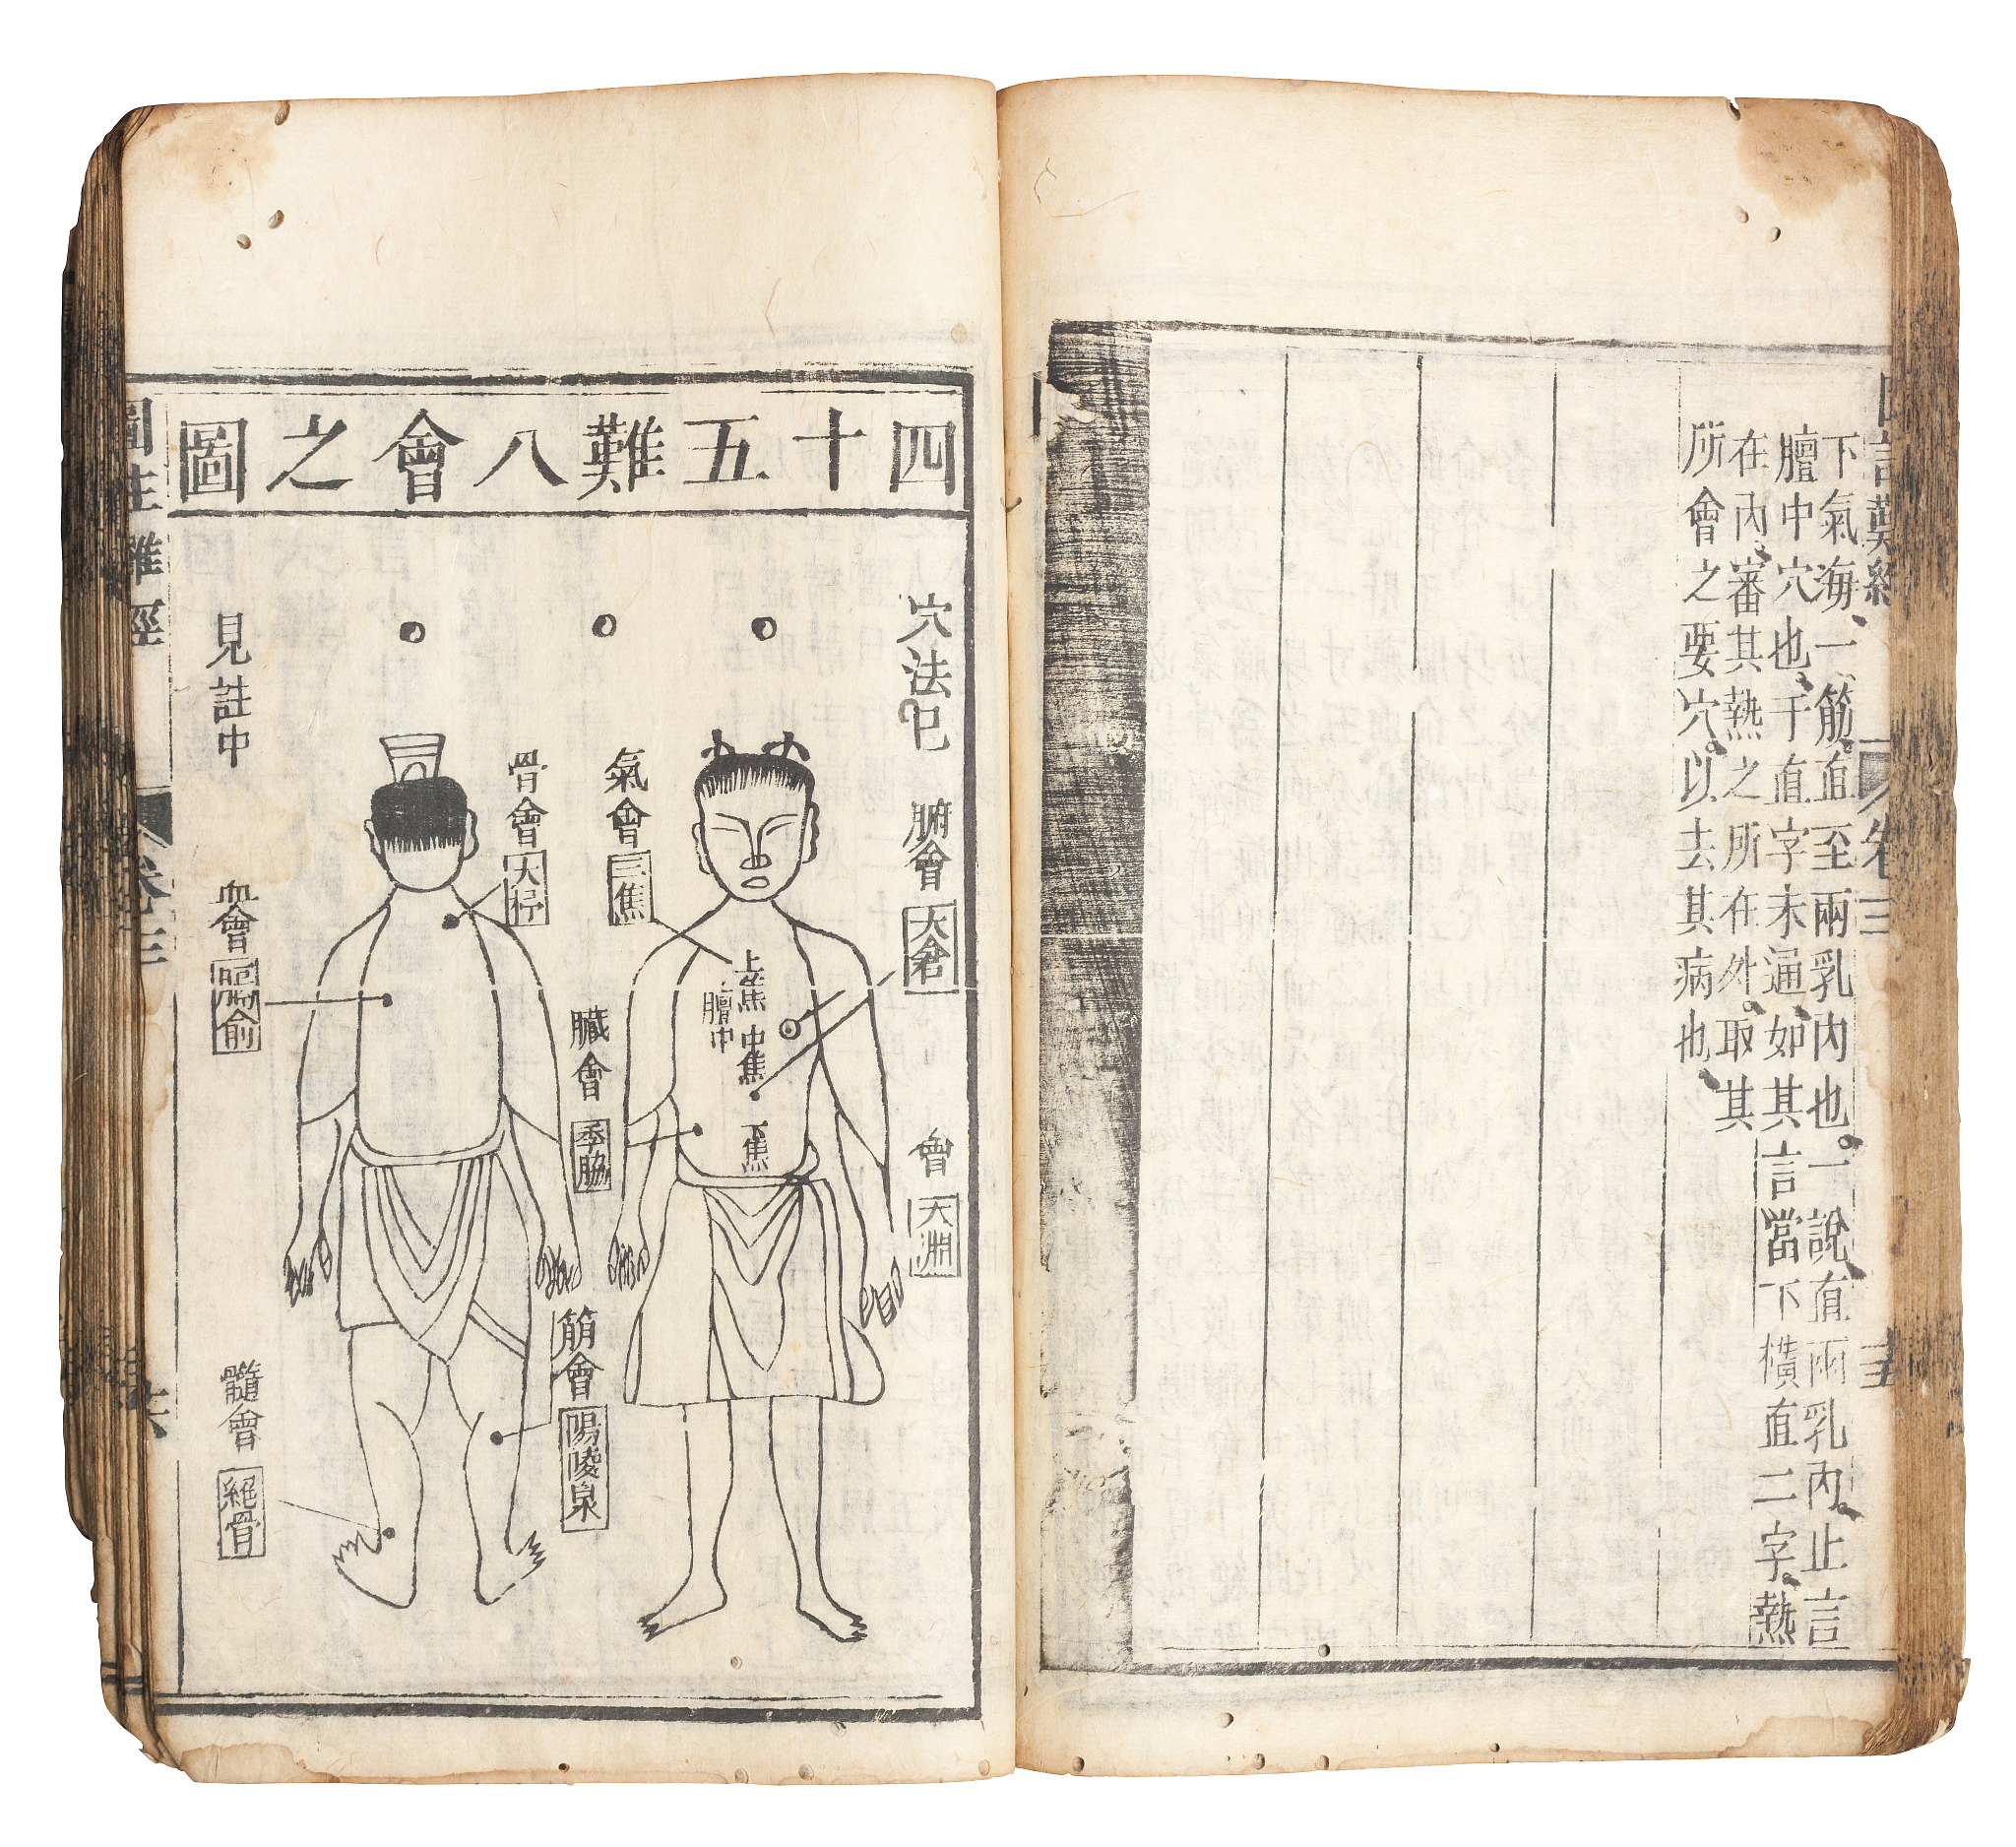 下氣海、一筋直至兩乳內也。一說直兩乳內、止言
膻中穴也、干直字未通、如其言當下橫直二字、熱
在內、審其熱之所在外。取其
所會之要穴。以去其病也、
卷三
四十五難八會之圖
穴法已
見註中
腑會
大倉
會
太淵
氣會
三焦
上焦
膻中
中焦
下焦
臟會
季脇
骨會
大杼
筋會
陽陵泉
血會
膈俞
髓會
絕骨
圖註難經
卷三